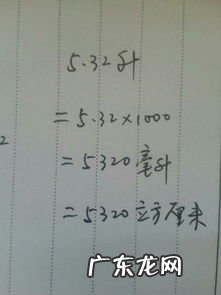 5.32升
=5.32×1000
2
=5320毫升
=5320立方厘米
广东龙网